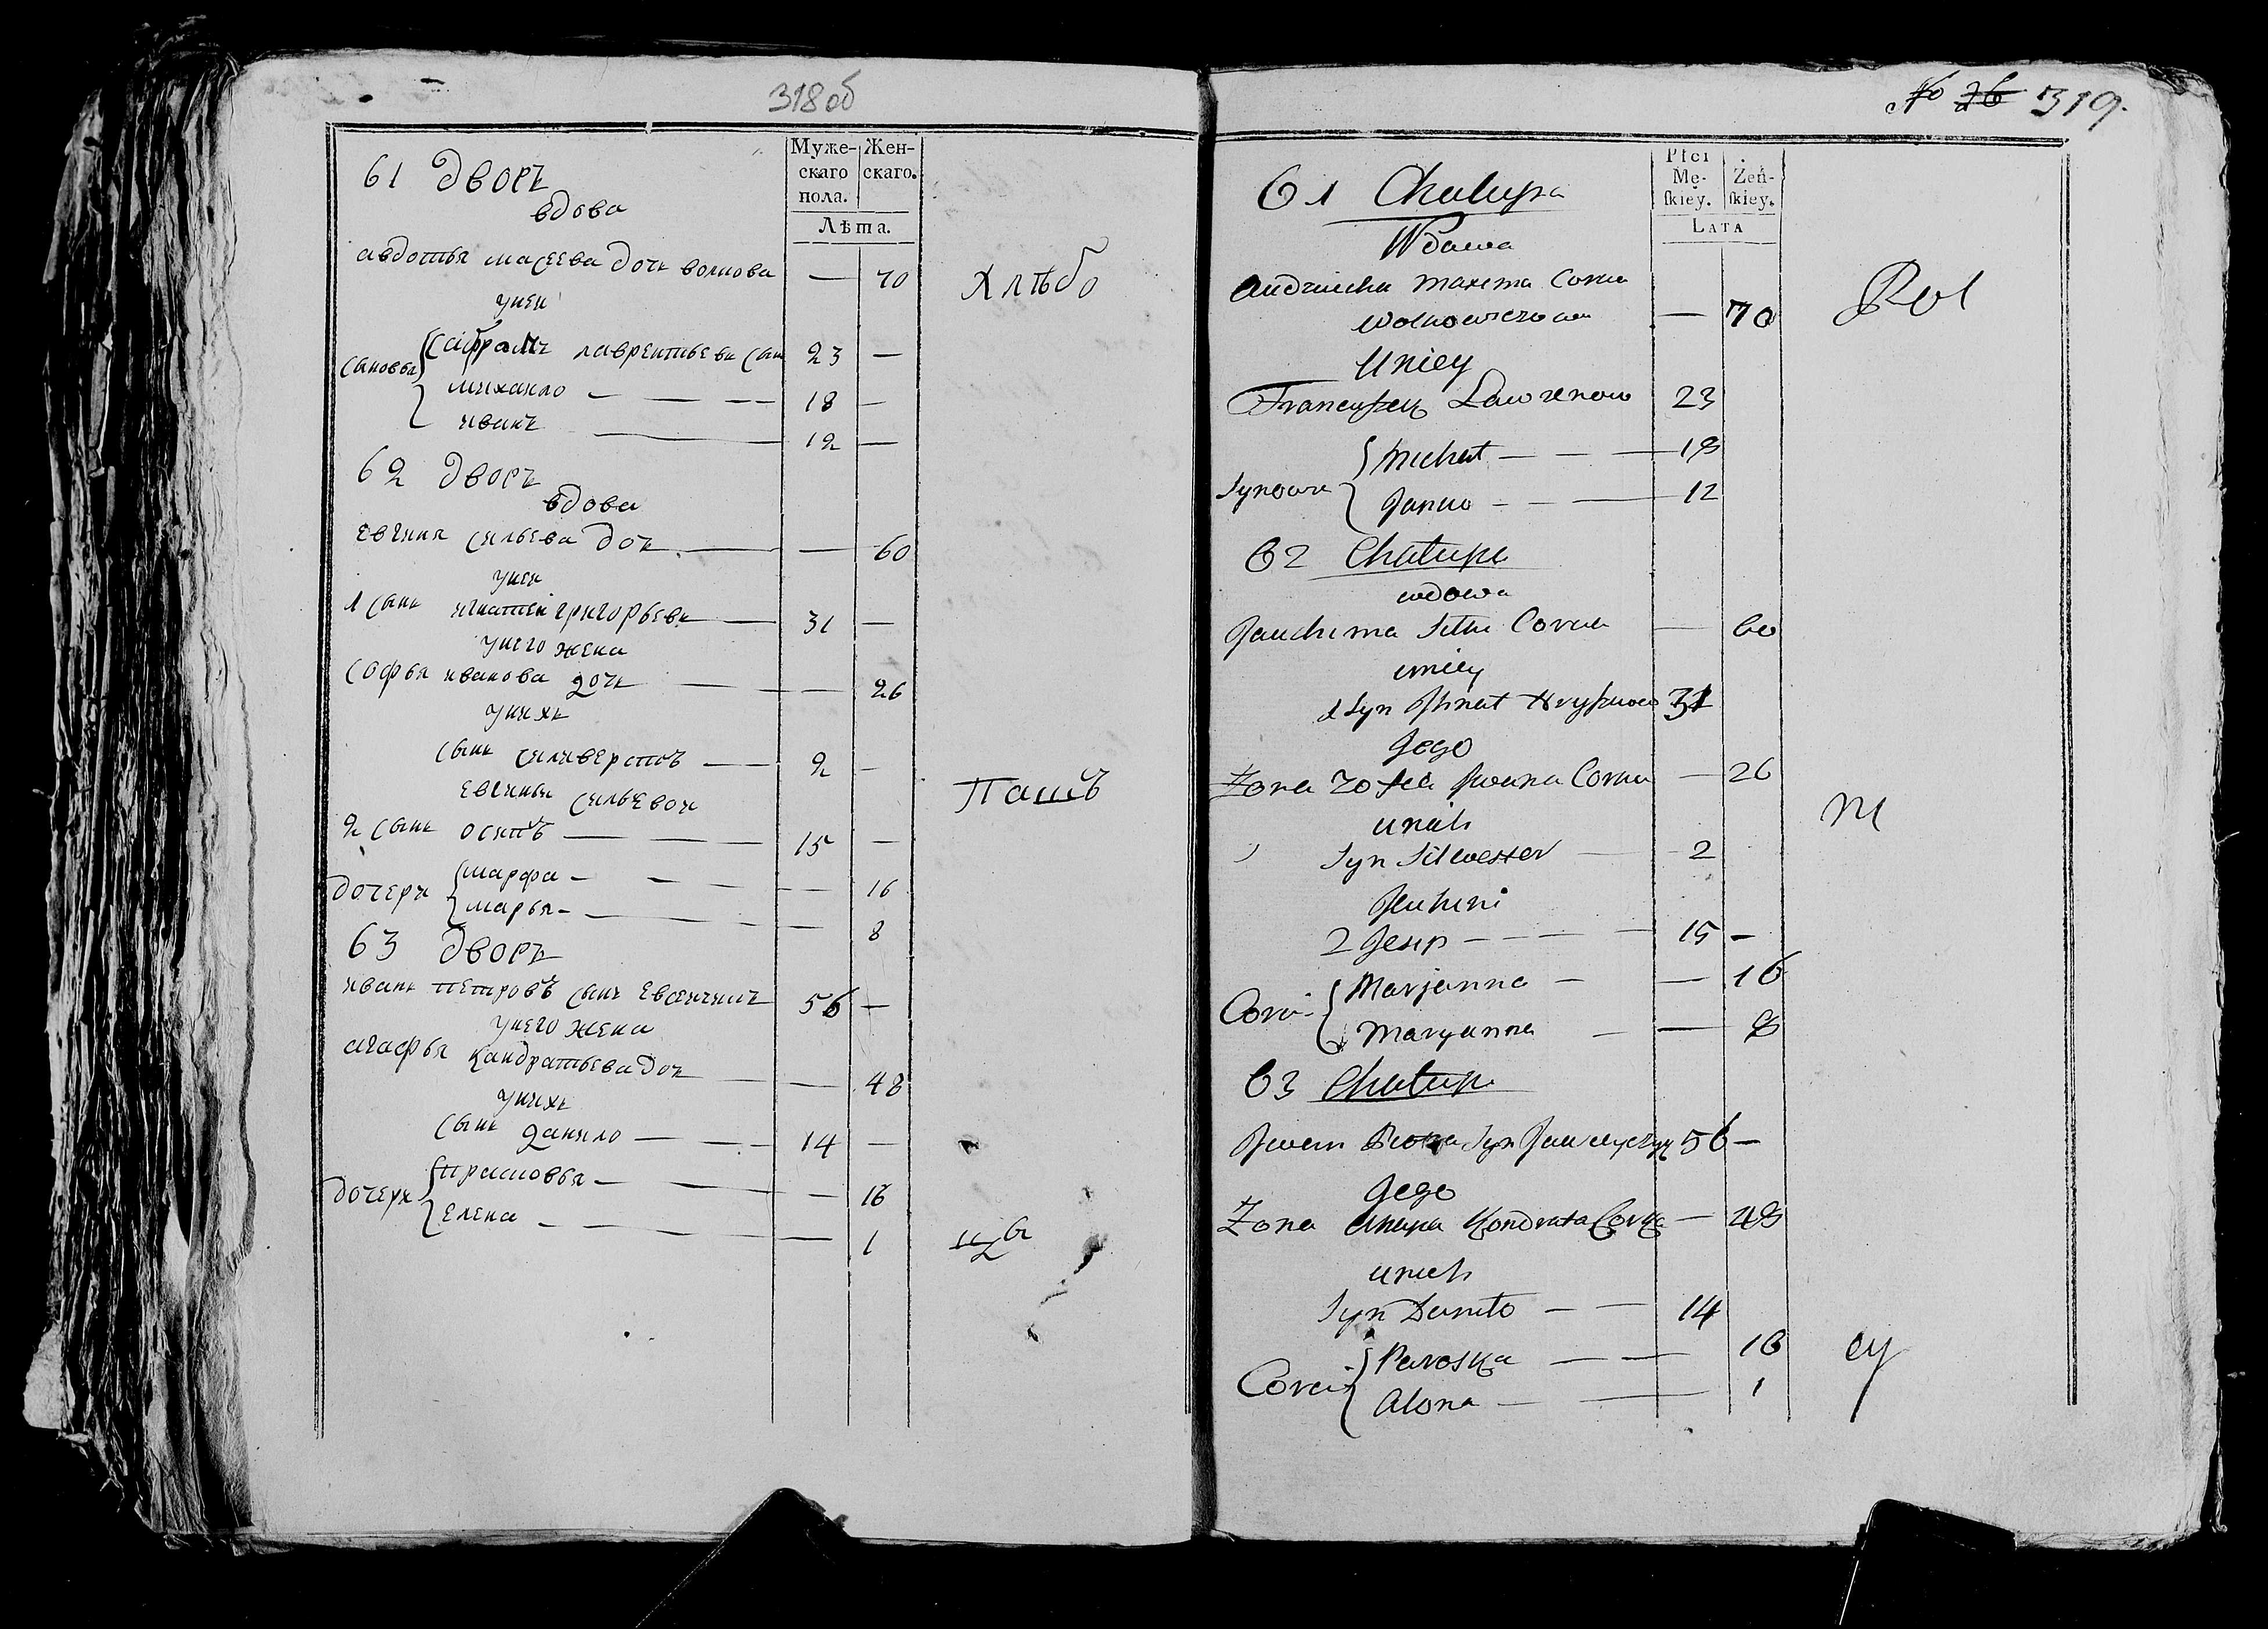 318об
Муже-
скаго
пола.
Жен-
скаго.
Лѣта.
61 дворъ
вдова
авдотья масеева дочь волкова — 70
Хлѣбо
унеи
сыновья
лаврентьевъ сын 23 —
михаило — 18 —
иванъ — 12 —
62 дворъ
вдова
евгиня сильева дочь — 60
унеи
1 сынъ игнатеи григорьевъ — 31 —
унего жена
софья иванова дочь — 26
унихъ
сынъ силиверстъ — 2 —
евгиньи сильевои
Пашъ
2 сынъ осипъ — 15 —
дочери
марфа — 16
марья — 8
63 дворъ
иванъ петровъ сынъ 56 —
унего жена
агафья кандратьева дочь — 48
унихъ
сынъ данило — 14 —
дочери
прасковья — 16
елена — 1
No 26 319.
Płci
Mę-
ſkiey.
Żeń-
ſkiey.
Lata
61 Chałupa
Wdowa
Maxima Corka
— 70
Rol
Uniey
Franciszek Lawrenow 23
Synowie
Michał — 18
Janko — 12
62 Chałupa
wdowa
Jauchima Corka — 60
uniey
1 Syn Ihnat Hryszkow 31
Jego
Zona Zofia Jwana Corka — 26
unich
m
Syn Silwester — 2
Jeuhini
2 Jesip — 15 —
Corki
Marjanna — 16
Maryanna — 8
63 Chałupa
Jwan Syn 56 —
Jego
Zona Ahapa Kondrata Corka — 48
unich
Syn Daniło — 14
Corki
Paroska — 16
Alona — 1